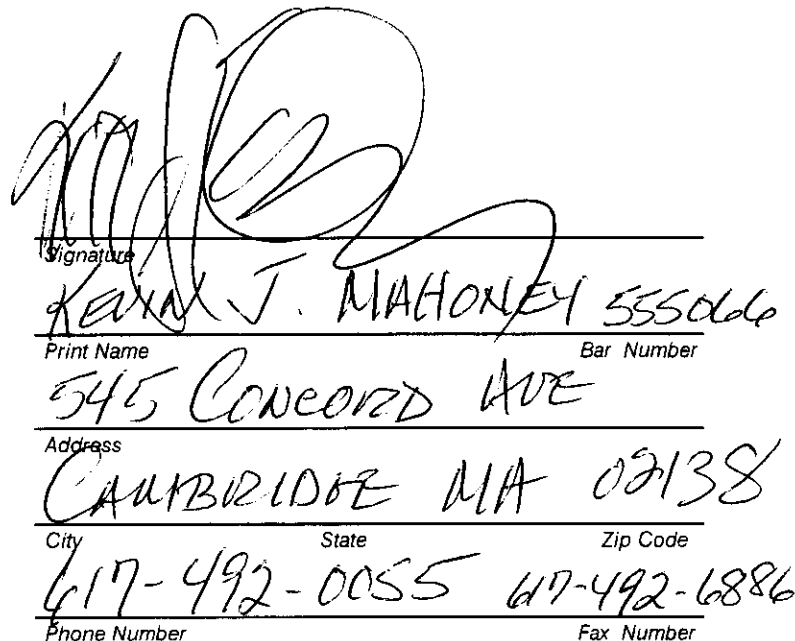 Signature
KEVIN J. MAHONEY 555066
Print Name Bar Number
545 CONCORD AVE
Address
CAMBRIDGE MA 02138
City State Zip Code
617-492-0055 617-492-6886
Phone Number Fax Number